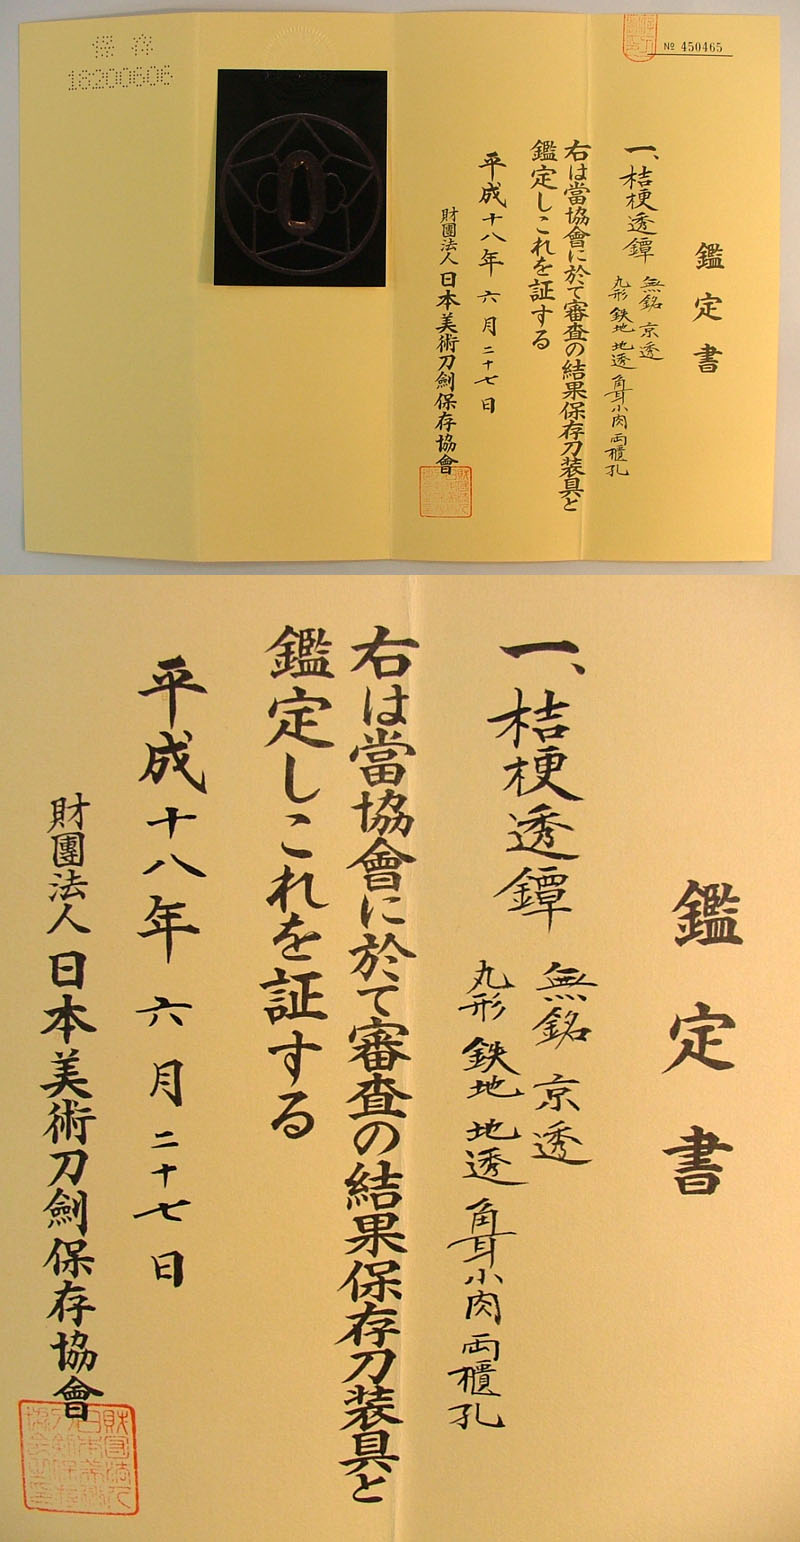 保存
18200606
№ 450465
鑑定書
一、桔梗透鐔
無銘 京透
丸形 鉄地 地透 角耳小肉 両櫃孔
右は當協會に於て審査の結果保存刀装具と
鑑定しこれを証する
平成十八年 六月二十七日
財團法人 日本美術刀劍保存協會
鑑定書
一、桔梗透鐔
無銘 京透
丸形 鉄地 地透 角耳小肉 両櫃孔
右は當協會に於て審査の結果保存刀装具と
鑑定しこれを証する
平成十八年 六月二十七日
財團法人 日本美術刀劍保存協會